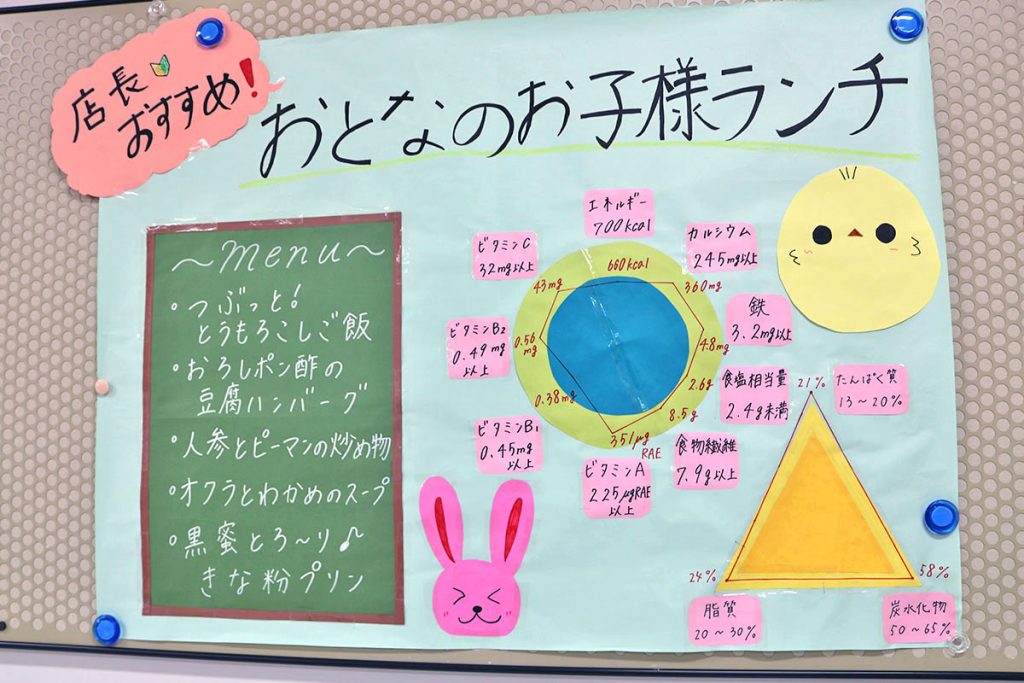 店長
おすすめ!
おとなのお子様ランチ
~menu~
・つぶっと!
とうもろこしご飯
・おろしポン酢の
豆腐ハンバーグ
・人参とピーマンの炒め物
・オクラとわかめのスープ
・黒蜜とろ~り♪
きな粉プリン
エネルギー
700kcal
カルシウム
245mg以上
鉄
3.2mg以上
食塩相当量
2.4g未満
食物繊維
7.9g以上
ビタミンA
225μgRAE
以上
ビタミンB1
0.45mg
以上
ビタミンB2
0.49mg
以上
ビタミンC
32mg以上
660kcal
360mg
4.8mg
2.6g
8.5g
351μg
RAE
0.38mg
0.56
mg
43mg
たんぱく質
13~20%
21%
24%
58%
脂質
20~30%
炭水化物
50~65%